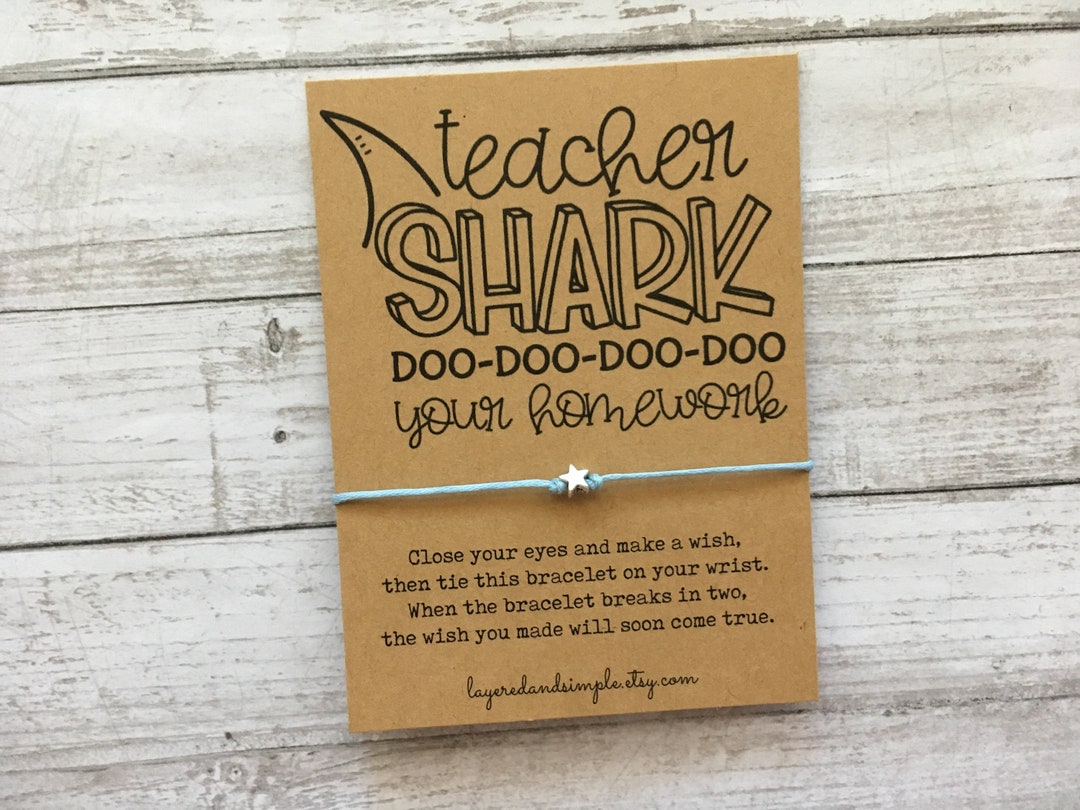 teacher
SHARK
DOO-DOO-DOO-DOO
your homework
Close your eyes and make a wish,
then tie this bracelet on your wrist.
When the bracelet breaks in two,
the wish you made will soon come true.
layeredandsimple.etsy.com